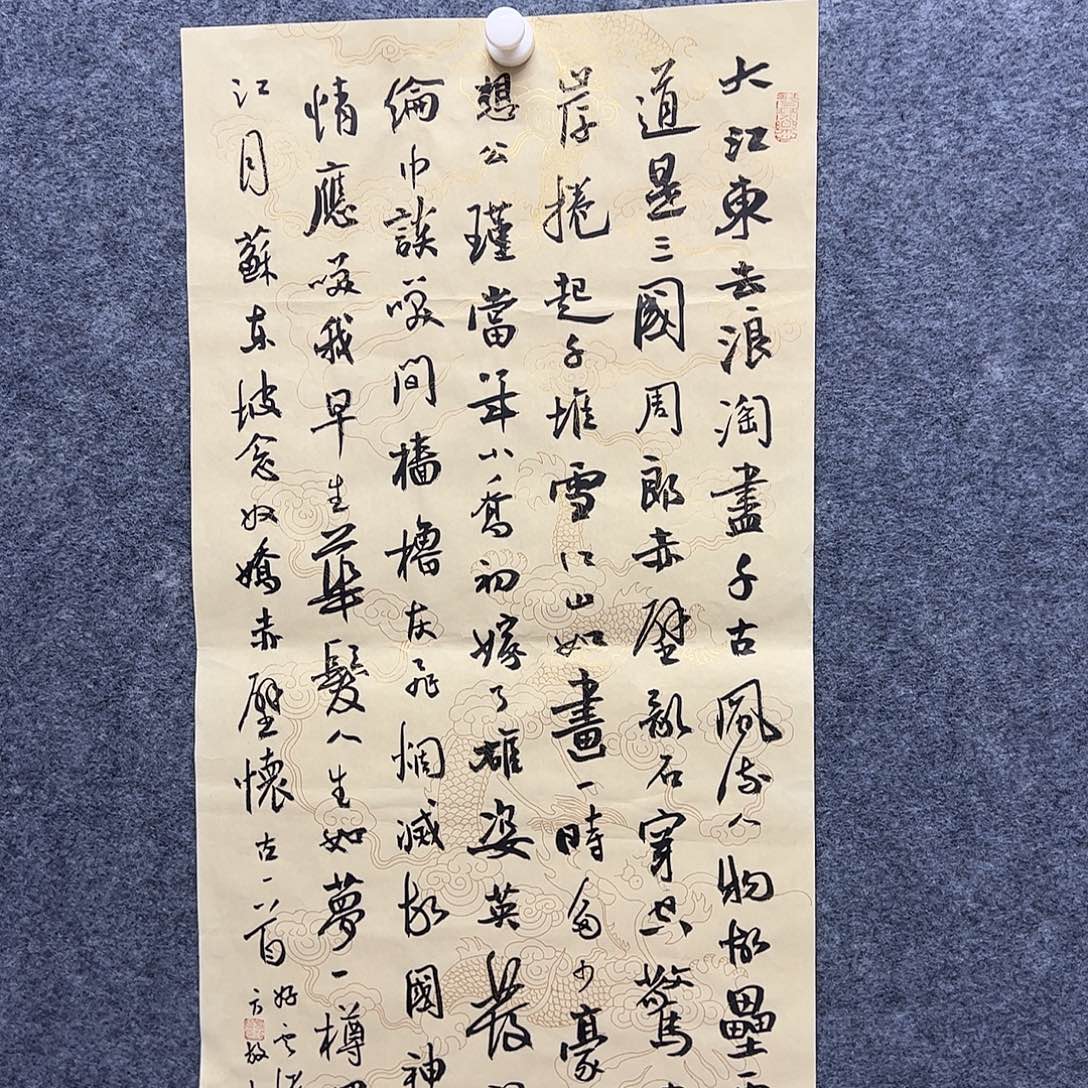 大江東去浪淘盡千古風流人物故壘
道是三國周郎赤壁亂石穿空驚
岸捲起千堆雪江山如畫一時多少豪
想公瑾當年小喬初嫁了雄姿英發
綸巾談咲間檣櫓灰飛烟滅故國神
情應咲我早生華髮人生如夢一樽
江月蘇東坡念奴嬌赤壁懷古一首